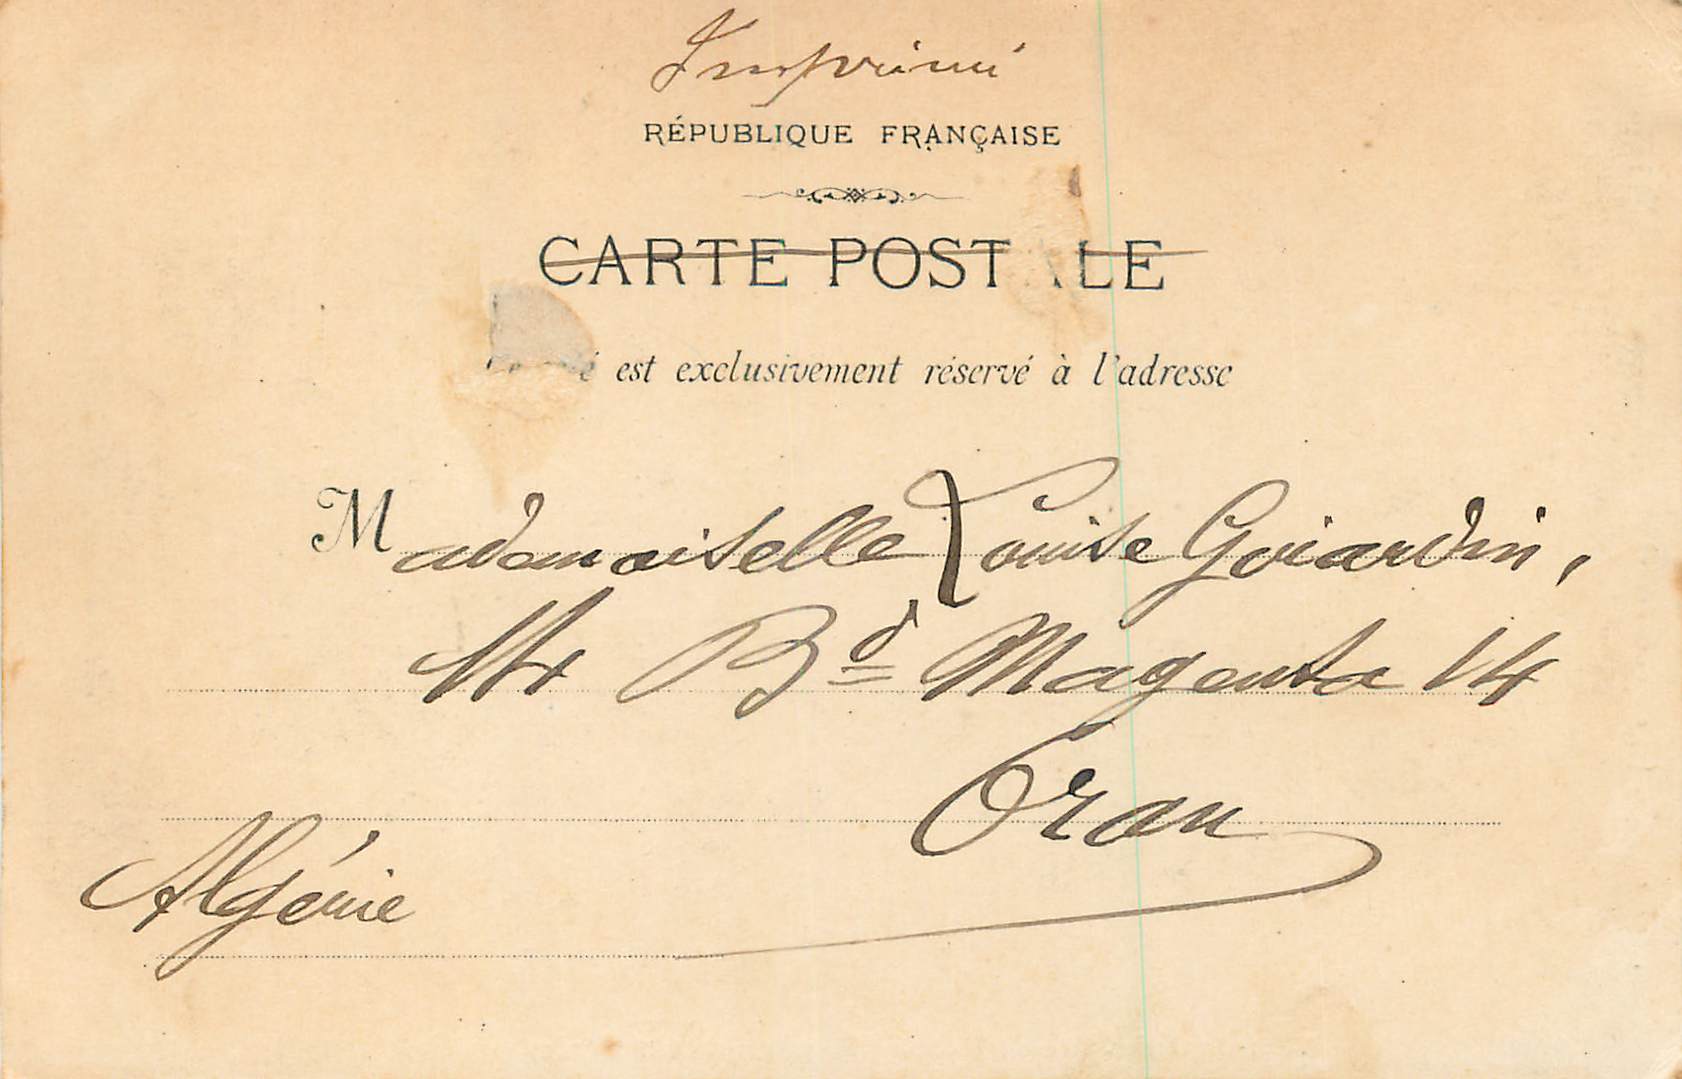 Imprimé
RÉPUBLIQUE FRANÇAISE
CARTE POSTALE
est exclusivement réservé à l'adresse
Mademoiselle Louise Goiardin,
14 Bd Magenta 14
Oran
Algérie